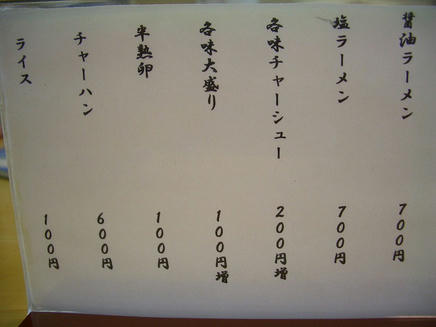 醤油ラーメン 700円
塩ラーメン 700円
各味チャーシュー 200円増
各味大盛り 100円増
半熟卵 100円
チャーハン 600円
ライス 100円